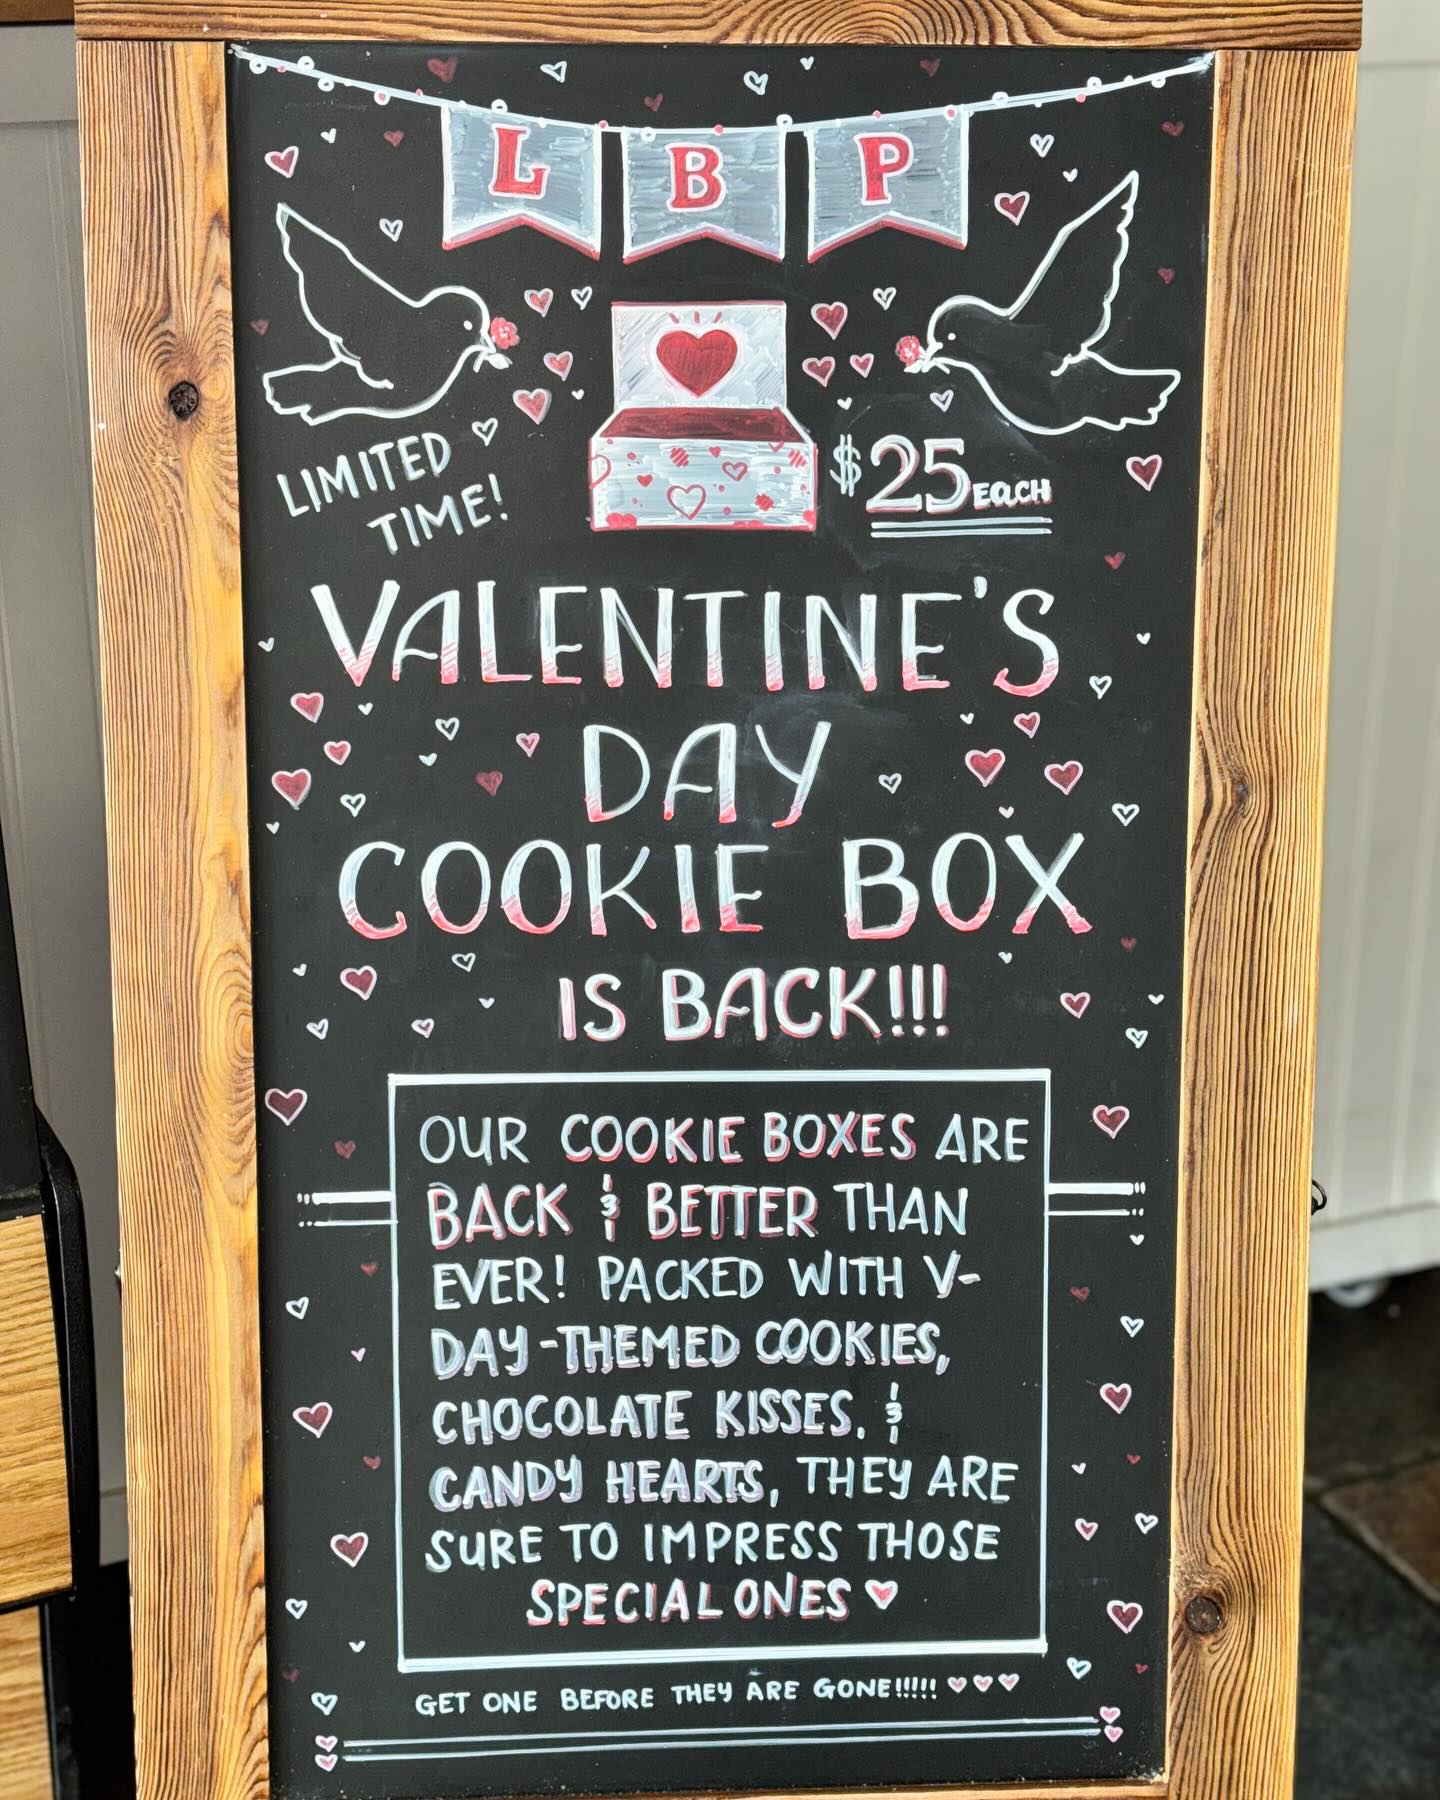 L B P
LIMITED
TIME!
$25 EACH
VALENTINE'S
DAY
COOKIE BOX
IS BACK!!!
OUR COOKIE BOXES ARE
BACK & BETTER THAN
EVER! PACKED WITH V-
DAY-THEMED COOKIES,
CHOCOLATE KISSES, &
CANDY HEARTS, THEY ARE
SURE TO IMPRESS THOSE
SPECIAL ONES ♥
GET ONE BEFORE THEY ARE GONE!!!!! ♥♥♥